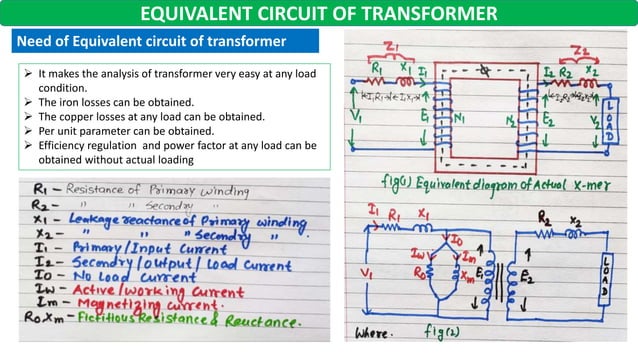 EQUIVALENT CIRCUIT OF TRANSFORMER
Need of Equivalent circuit of transformer
➢ It makes the analysis of transformer very easy at any load
condition.
➢ The iron losses can be obtained.
➢ The copper losses at any load can be obtained.
➢ Per unit parameter can be obtained.
➢ Efficiency regulation and power factor at any load can be
obtained without actual loading
R1 – Resistance of Primary winding
R2 – " " Secondry "
X1 – Leakage reactance of Primary winding.
X2 – " " " Secondry "
I1 – Primary/Input Current
I2 – Secondry/output/Load Current
I0 – No Load Current
Iw – Active/working current
Im – Magnetizing current.
R0, Xm – Fictitious Resistance & Reuctance.
Z1 Z2
R1 X1 I1 ϕ I2 R2 X2
I1R1 I1X1 I2R2 I2X2
V1 E1 N1 N2 E2 V2 LOAD
fig(1) Equivalent diagram of Actual X-mer
I1 R1 X1 R2 X2
I0
Iw Im
V1 R0 Xm E1 E2 LOAD
where. fig(2)